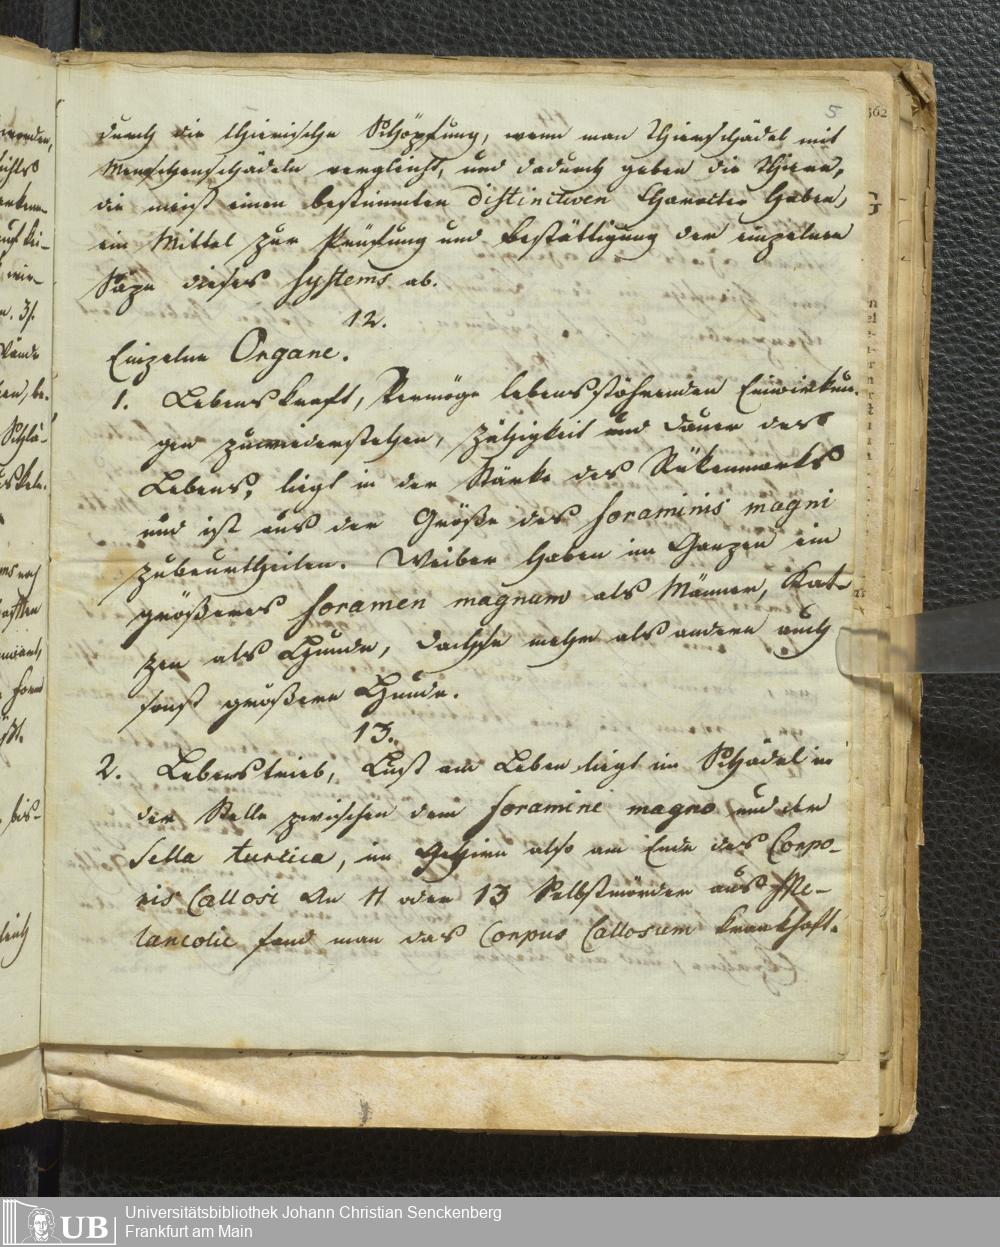 5
durch die thierische Schöpfung, wenn man Thierschädel mit
Menschenschädeln vergleicht, und dadurch geben die Thiere,
die meist einen bestimmten distinctiven Charakter haben,
ein Mittel zur Prüfung und Bestättigung der einzelnen
Säze dieses Systems ab.
12.
Einzelne Organe.
1. Lebenskraft, Vermöge lebensstöhrenden Einwirkun-
gen zuwiederstehen, Zähigkeit und Dauer des
Lebens, liegt in der Stärke des Rükenmarks
und ist aus der Größe des foraminis magni
zubeurtheilen. Weiber haben im Ganzen ein
größeres foramen magnum als Männer, Kat-
zen als Hunde, Dachse mehr als andere auch
sonst größere Hunde.
13.
2. Lebenstrieb, Lust am Leben liegt im Schädel in
der Stelle zwischen dem foramine magno und der
Sella turcica, im Gehirn also am Ende des Corpo-
ris Callosi An 11 oder 13 Selbstmörder aus Me-
lancolie fand man das Corpus Callosum krankhaft.
UB
Universitätsbibliothek Johann Christian Senckenberg
Frankfurt am Main